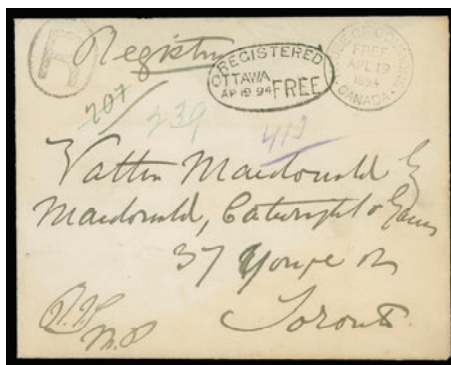 R
Registered
REGISTERED
OTTAWA
AP 19 94 FREE
HOUSE OF COMMONS
FREE
APL 19
1894
CANADA
207
239
412
Macdonald
Macdonald, Catwright &
37 Yonge
Toronto
M.P